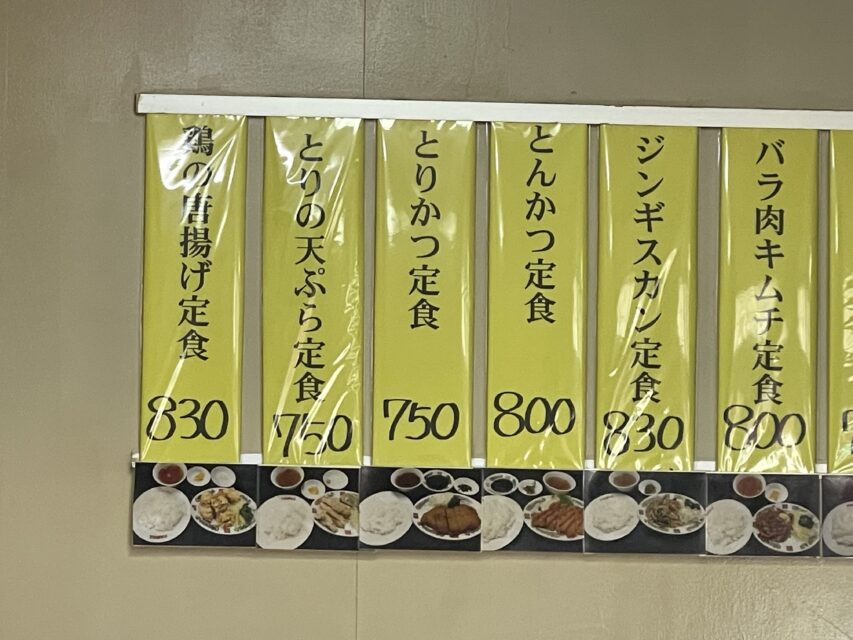 鶏の唐揚げ定食
830
とりの天ぷら定食
750
とりかつ定食
750
とんかつ定食
800
ジンギスカン定食
830
バラ肉キムチ定食
800